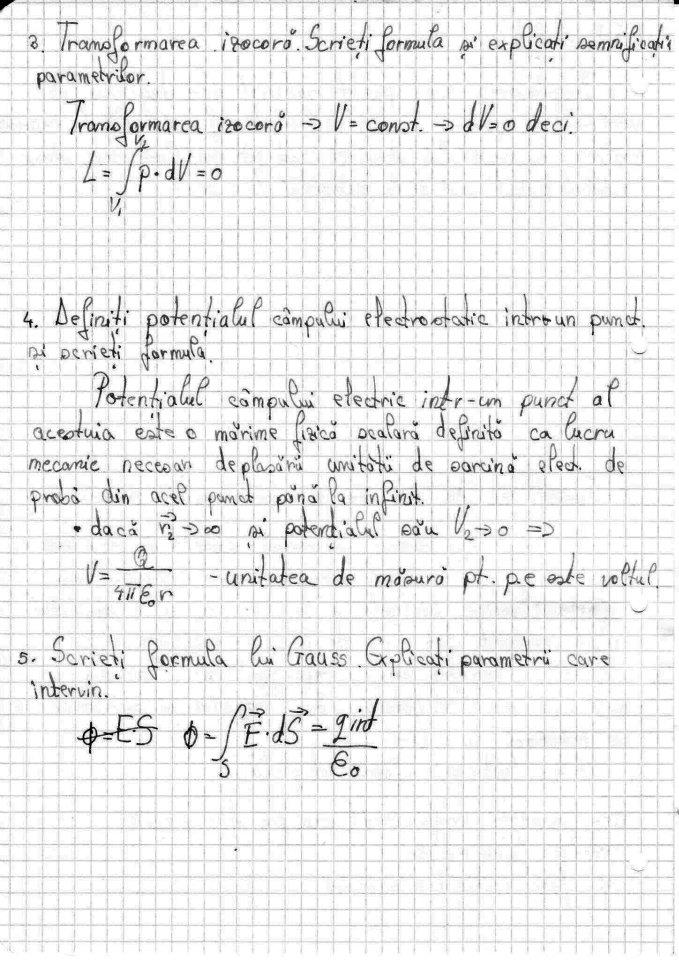 3. Transformarea izocoră. Scrieți formula și explicați semnificația
parametrilor.
Transformarea izocoră → V = const. → dV=0 deci.
L = ∫_{V₁}^{V₂} p·dV = 0
4. Definiți potențialul câmpului electrostatic intr-un punct.
și scrieți formula.
Potențialul câmpului electric intr-un punct al
acestuia este o mărime fizică scalară definită ca lucru
mecanic necesar deplasării unității de sarcină elect. de
probă din acel punct până la infinit.
• dacă r₂⃗ → ∞ și potențialul său V₂→0 =>
V = Q/4πε₀r - unitatea de măsură pt. p.e este voltul.
5. Scrieți formula lui Gauss. Explicați parametrii care
intervin.
ϕ=ES ϕ = ∫_S E⃗·dS⃗ = q int/ε₀